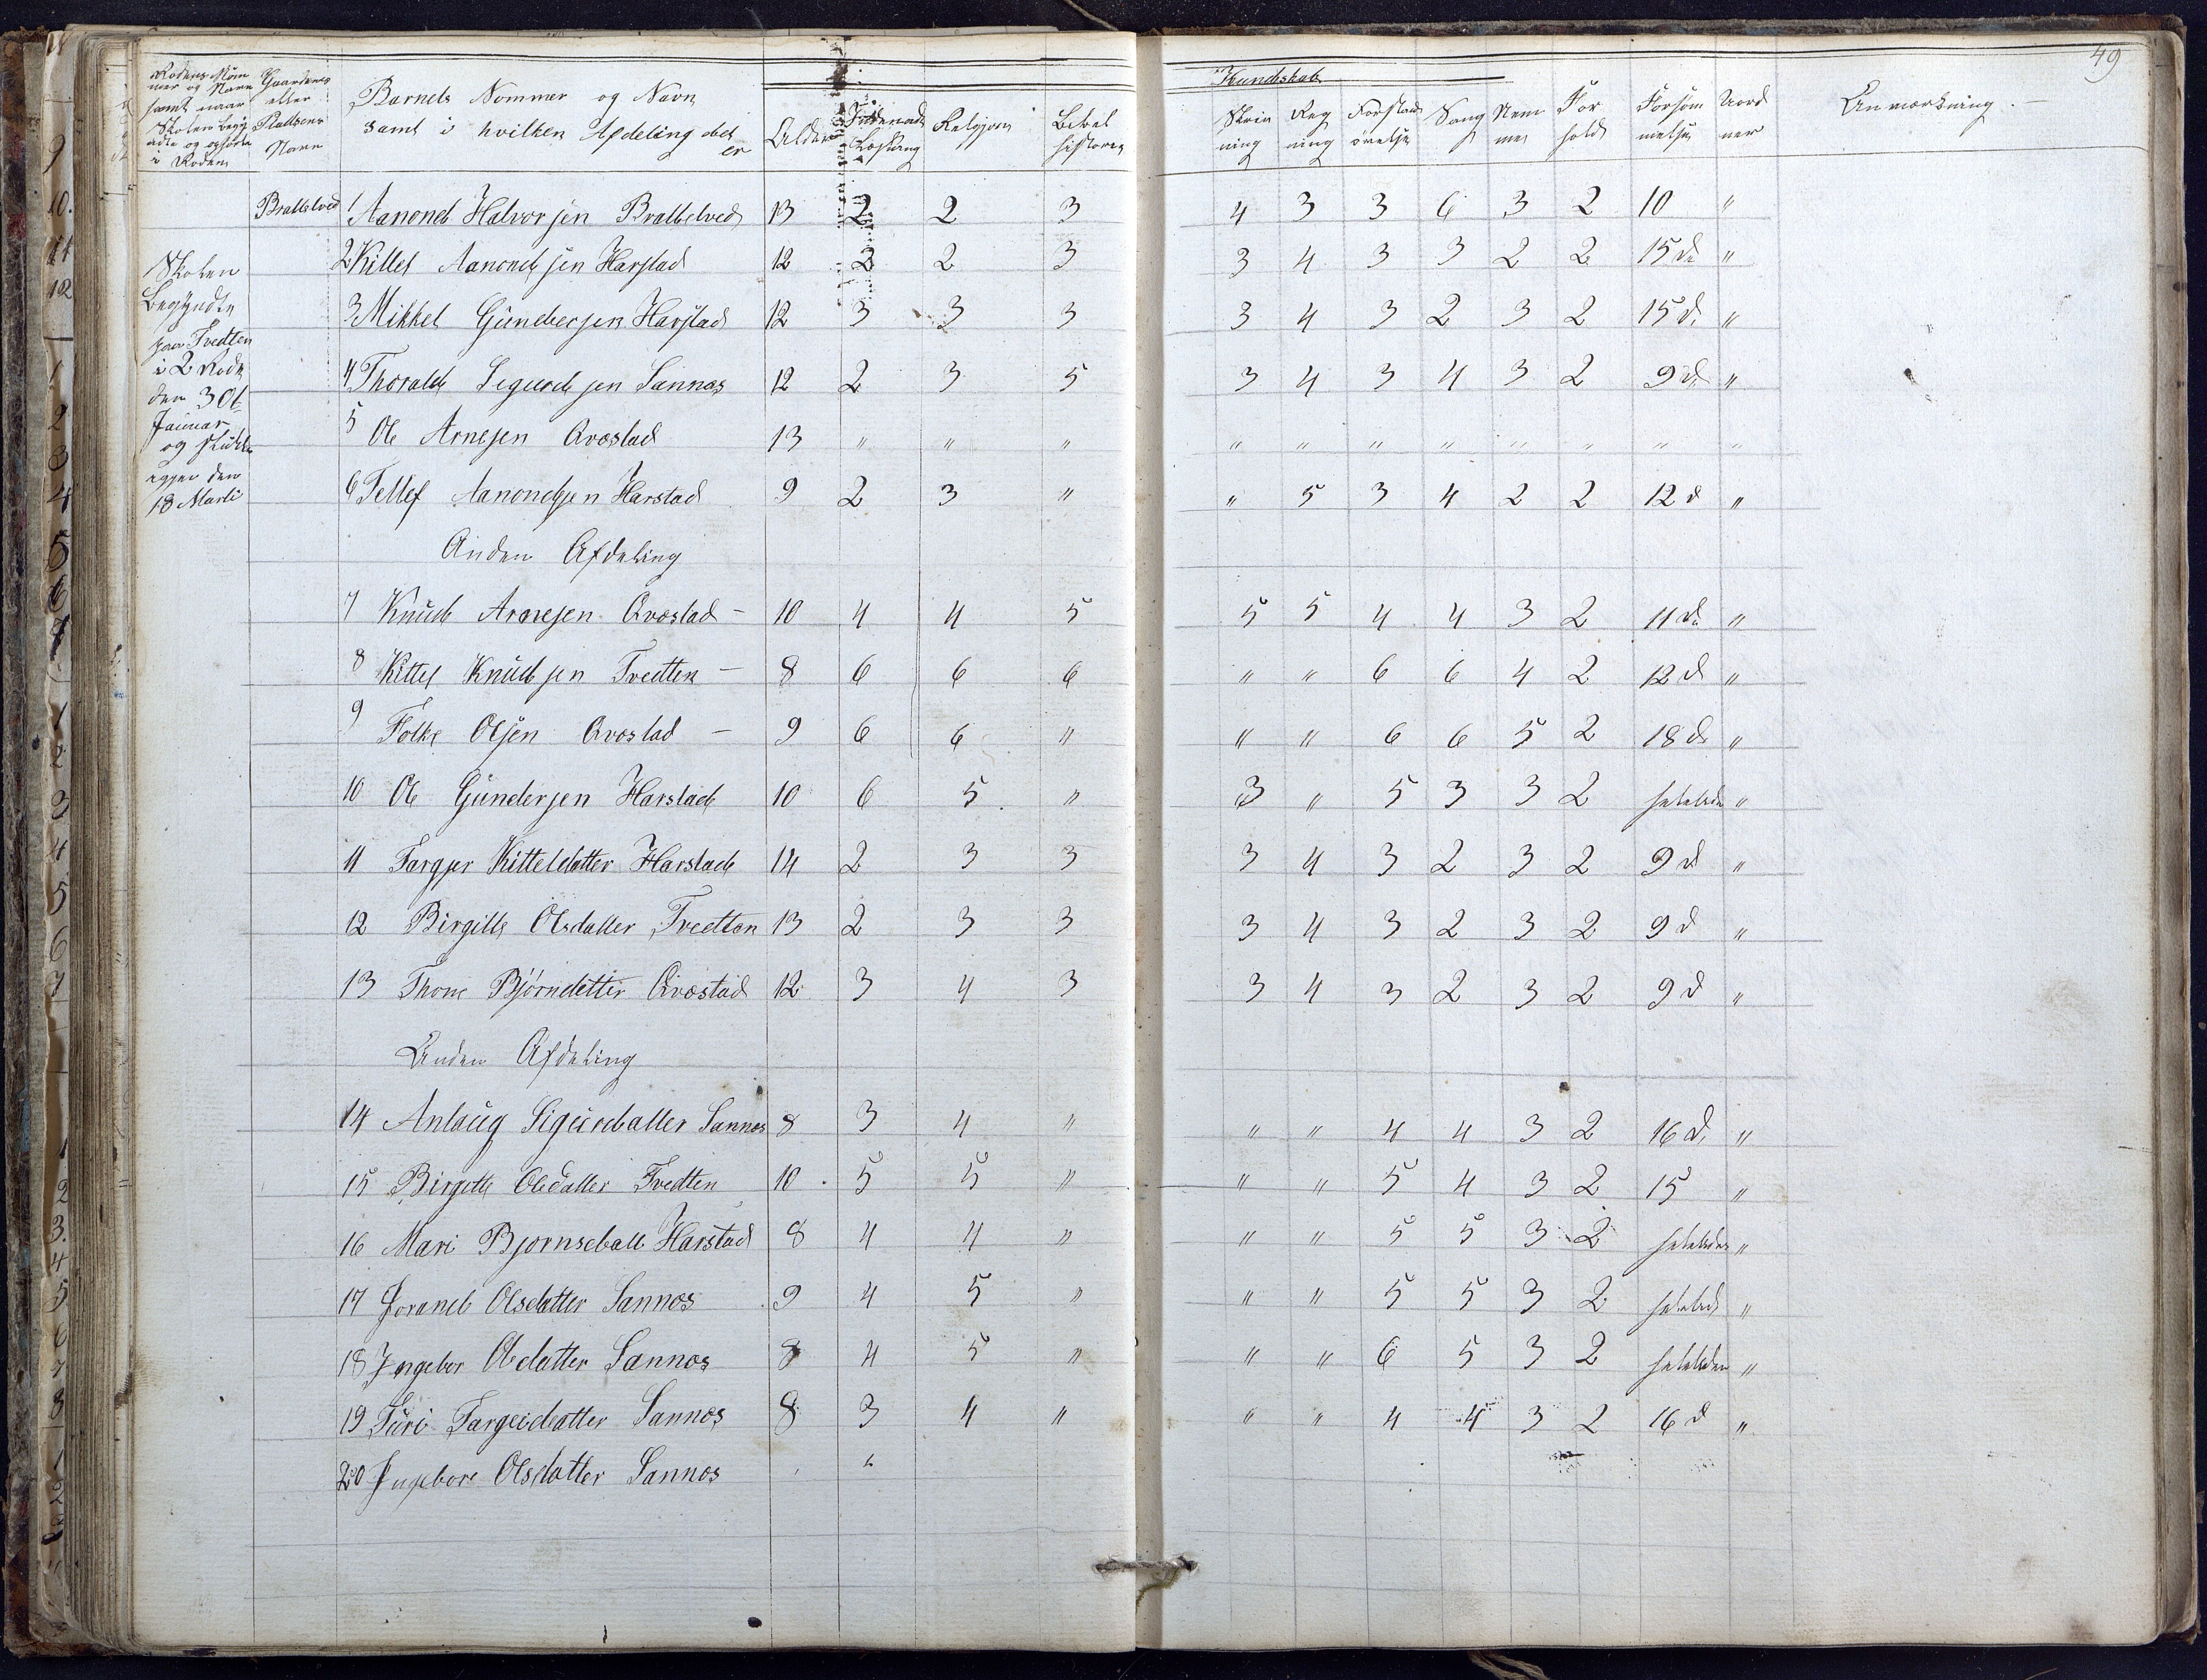 49
Rodens Nom
mer og Navn
samt naar
Skolen begyn
Gaardens
eller
Pladsens
Navn
Barnets Nommer og Navn
samt i hvilken Afdeling det
er
Alder
Indenads
Læsning
Religion
Bibel
historie
Kundskab
Skriv
ning
Reg
ning
Forstands
øvelse
Sang
Nem
me
For
hold
Forsøm
melser
Uord
ner
Anmærkning
Skolen
Begyndte
paa Tvedten
i 2 Rode
den 30t
Januar
og sluttedes
igjen den
18 Marti
Bratteled 1 Aanond Halvorsen Brattelved 13 2 2 3 4 3 3 6 3 2 10 "
2 Kittel Aanondsen Harstad 12 2 2 3 3 4 3 3 2 2 15 d "
3 Mikkel Gundersen Harstad 12 3 3 3 3 4 3 2 3 2 15 d. "
4 Thorald Sigurdsen Sannæs 12 2 3 5 3 4 3 4 3 2 9 d "
5 Ole Arnesen Qvæstad 13 " " " " " " " " " " "
6 Tellef Aanondsen Harstad 9 2 3 " " 5 3 4 2 2 12 d "
Anden Afdeling
7 Knud Arnesen Qvæstad - 10 4 4 5 5 5 4 4 3 2 11 d "
8 Kittel Knudsen Tvedten - 8 6 6 6 " " 6 6 4 2 12 d "
9 Folke Olsen Qvæstad - 9 6 6 " " " 6 6 5 2 18 d "
10 Ole Gundersen Harstad 10 6 5 " 3 " 5 3 3 2 heletiden "
11 Targjer Kitteldatter Harstad 14 2 3 3 3 4 3 2 3 2 9 d "
12 Birgitte Olsdatter Tvedten 13 2 3 3 3 4 3 2 3 2 9 d "
13 Thone Bjørndatter Qvæstad 12 3 4 3 3 4 3 2 3 2 9 d "
Anden Afdeling
14 Anlaug Sigurdatter Sannæs 8 3 4 " " " 4 4 3 2 16 d. "
15 Birgitte Olsdatter Tvedten 10 5 5 " " " 5 4 3 2 15 "
16 Mari Bjørnsdatt Harstad 8 4 4 " " " 5 5 3 2 heletiden "
17 Jorand Olsdatter Sannæs 9 4 5 " " " 5 5 3 2 heletid "
18 Ingebor Olsdatter Sannæs 8 4 5 " " " 6 5 3 2 heletiden "
19 Siuri Targeisdatter Sannæs 8 3 4 " " " 4 4 3 2 16 d "
20 Ingebore Olsdatter Sannæs " "